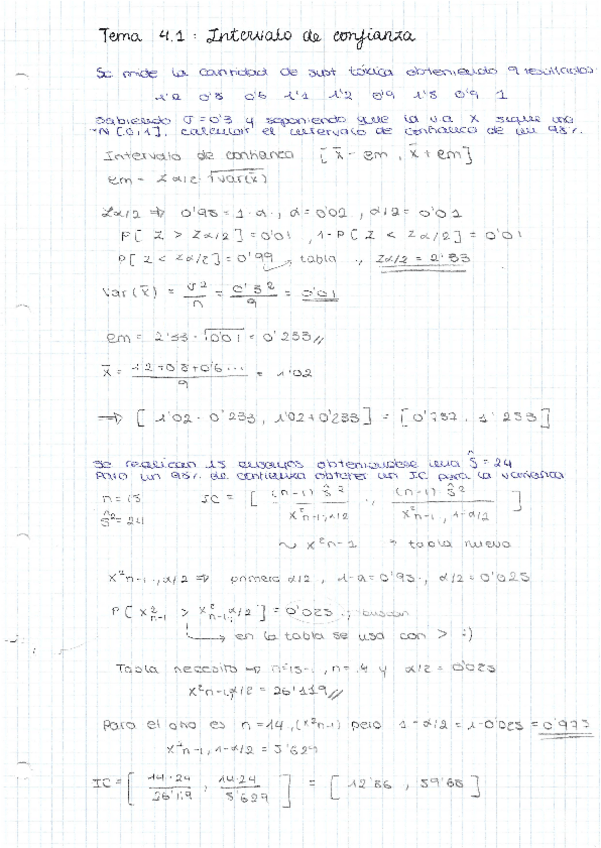 Tema 4.1: Intervalo de confianza
Se mide la cantidad de sust tóxica obteniendo 9 resultados
1'2 0'8 0'6 1'1 1'2 0'9 1'5 0'9 1
Sabiendo σ=0'3 y suponiendo que la v.a X sigue una
N[0,1], calcular el intervalo de confianza de un 98%.
Intervalo de confianza [x̄ - em, x̄ + em]
em = Zα/2 · √var(x̄)
Zα/2 ⇒ 0'98 = 1-α, α = 0'02, α/2 = 0'01
P[Z > Zα/2] = 0'01, 1-P[Z < Zα/2] = 0'01
P[Z < Zα/2] = 0'99 → tabla, Zα/2 = 2'33
Var(x̄) = σ²/n = 0'3²/9 = 0'01
em = 2'33 · √0'01 = 0'233 //
x̄ = 1'2+0'8+0'6.../9 = 1'02
⇒ [1'02 - 0'233, 1'02+0'233] = [0'787, 1'253]
Se realizan 15 ensayos obteniéndose una ŝ = 24
Para un 95% de confianza obtener un IC para la varianza
n = 15 IC = [(n-1)ŝ²/x²n-1,α/2, (n-1)ŝ²/x²n-1,1-α/2]
ŝ² = 24
~ x²n-1 → tabla nueva
x²n-1,α/2 ⇒ primero α/2, 1-α = 0'95, α/2 = 0'025
P[x²n-1 > x²n-1,α/2] = 0'025, buscar
→ en la tabla se usa con > :)
Tabla necesito → n=15-1, n=14 y α/2 = 0'025
x²n-1,α/2 = 26'119 //
Para el otro es n=14, (x²n-1) pero 1-α/2 = 1-0'025 = 0'975
x²n-1,1-α/2 = 5'629
IC = [14·24/26'119, 14·24/5'629] = [12'86, 59'68]